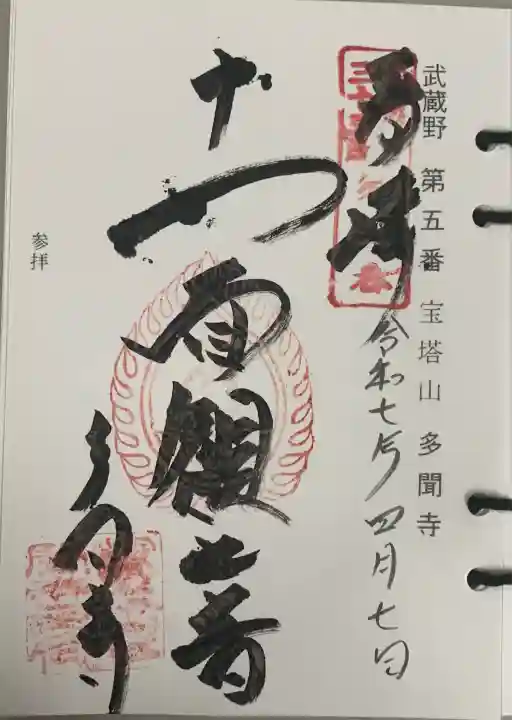 武蔵野 第五番 宝塔山 多聞寺
奉拝
令和七年四月七日
十一面観音
多聞寺
参拝